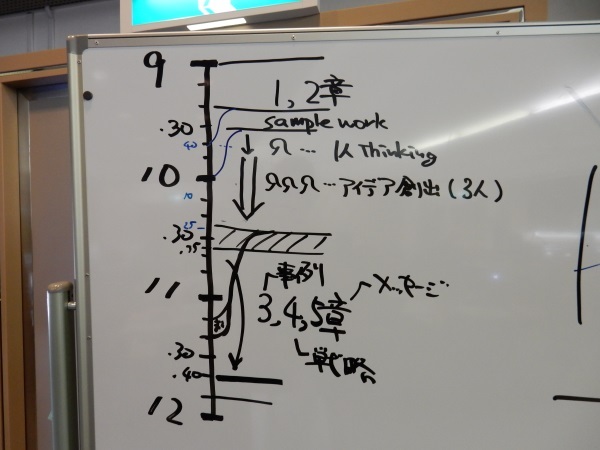 9
1,2章
.30
sample work
40
… μ Thinking
10
… アイデア創出(3人)
10
25
.30
.35
事例
11
3,4,5章
メッセージ
.30
戦略
.40
12